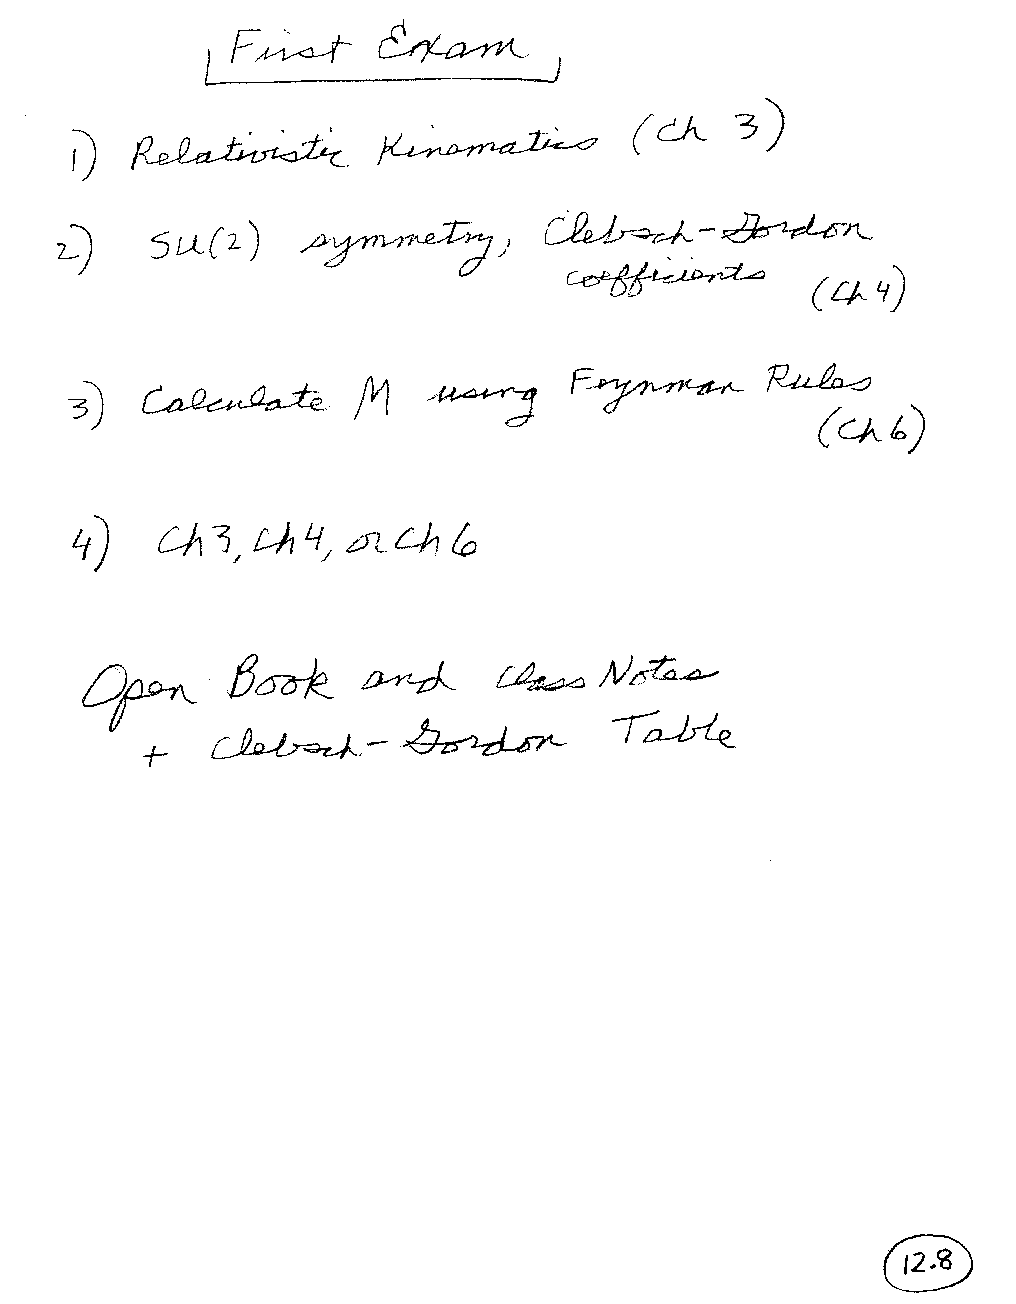 First Exam
1) Relativistic Kinematics (Ch 3)
2) SU(2) symmetry, Clebsch-Gordon
coefficients
(Ch 4)
3) Calculate M using Feynman Rules
(Ch 6)
4) Ch3, Ch4, or Ch 6
Open Book and Class Notes
+ Clebsch-Gordon Table
12.8